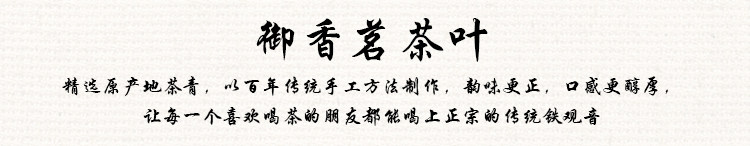 御香茗茶叶
精选原产地茶青，以百年传统手工方法制作，韵味更正，口感更醇厚，
让每一个喜欢喝茶的朋友都能喝上正宗的传统铁观音